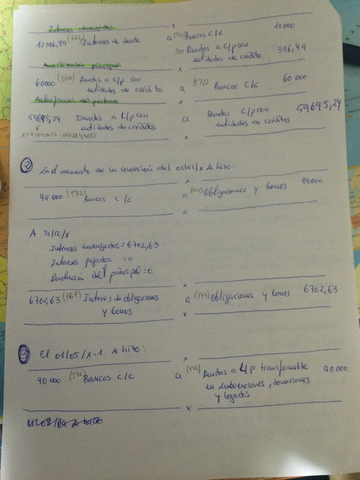 Intereses devengados
12396,44 (662) Intereses de deuda a (572) Bancos c/c 12000
Deudas a C/p con entidades de crédito 396,44
Amortización principal
60000 (520) Deudas a C/p con entidades de crédito a (572) Bancos c/c 60 000
59695,24 Deudas a L/p con entidades de créditos a Deudas C/p con entidades de créditos 59695,24
② En el momento de la emisión del 01/01/x se hizo:
94 000 (572) Bancos c/c a Obligaciones y bonos 94000
A 31/12/x
Intereses devengados = 6702,63
Intereses pagados = 0
Devolución del principal = 0
6702,63 (661) Intereses de obligaciones y bonos a Obligaciones y bonos 6702,63
③ El 01/05/x-1 se hizo:
90 000 (572) Bancos c/c a Deudas a L/p transformable en subvenciones, donaciones y legados 90 000